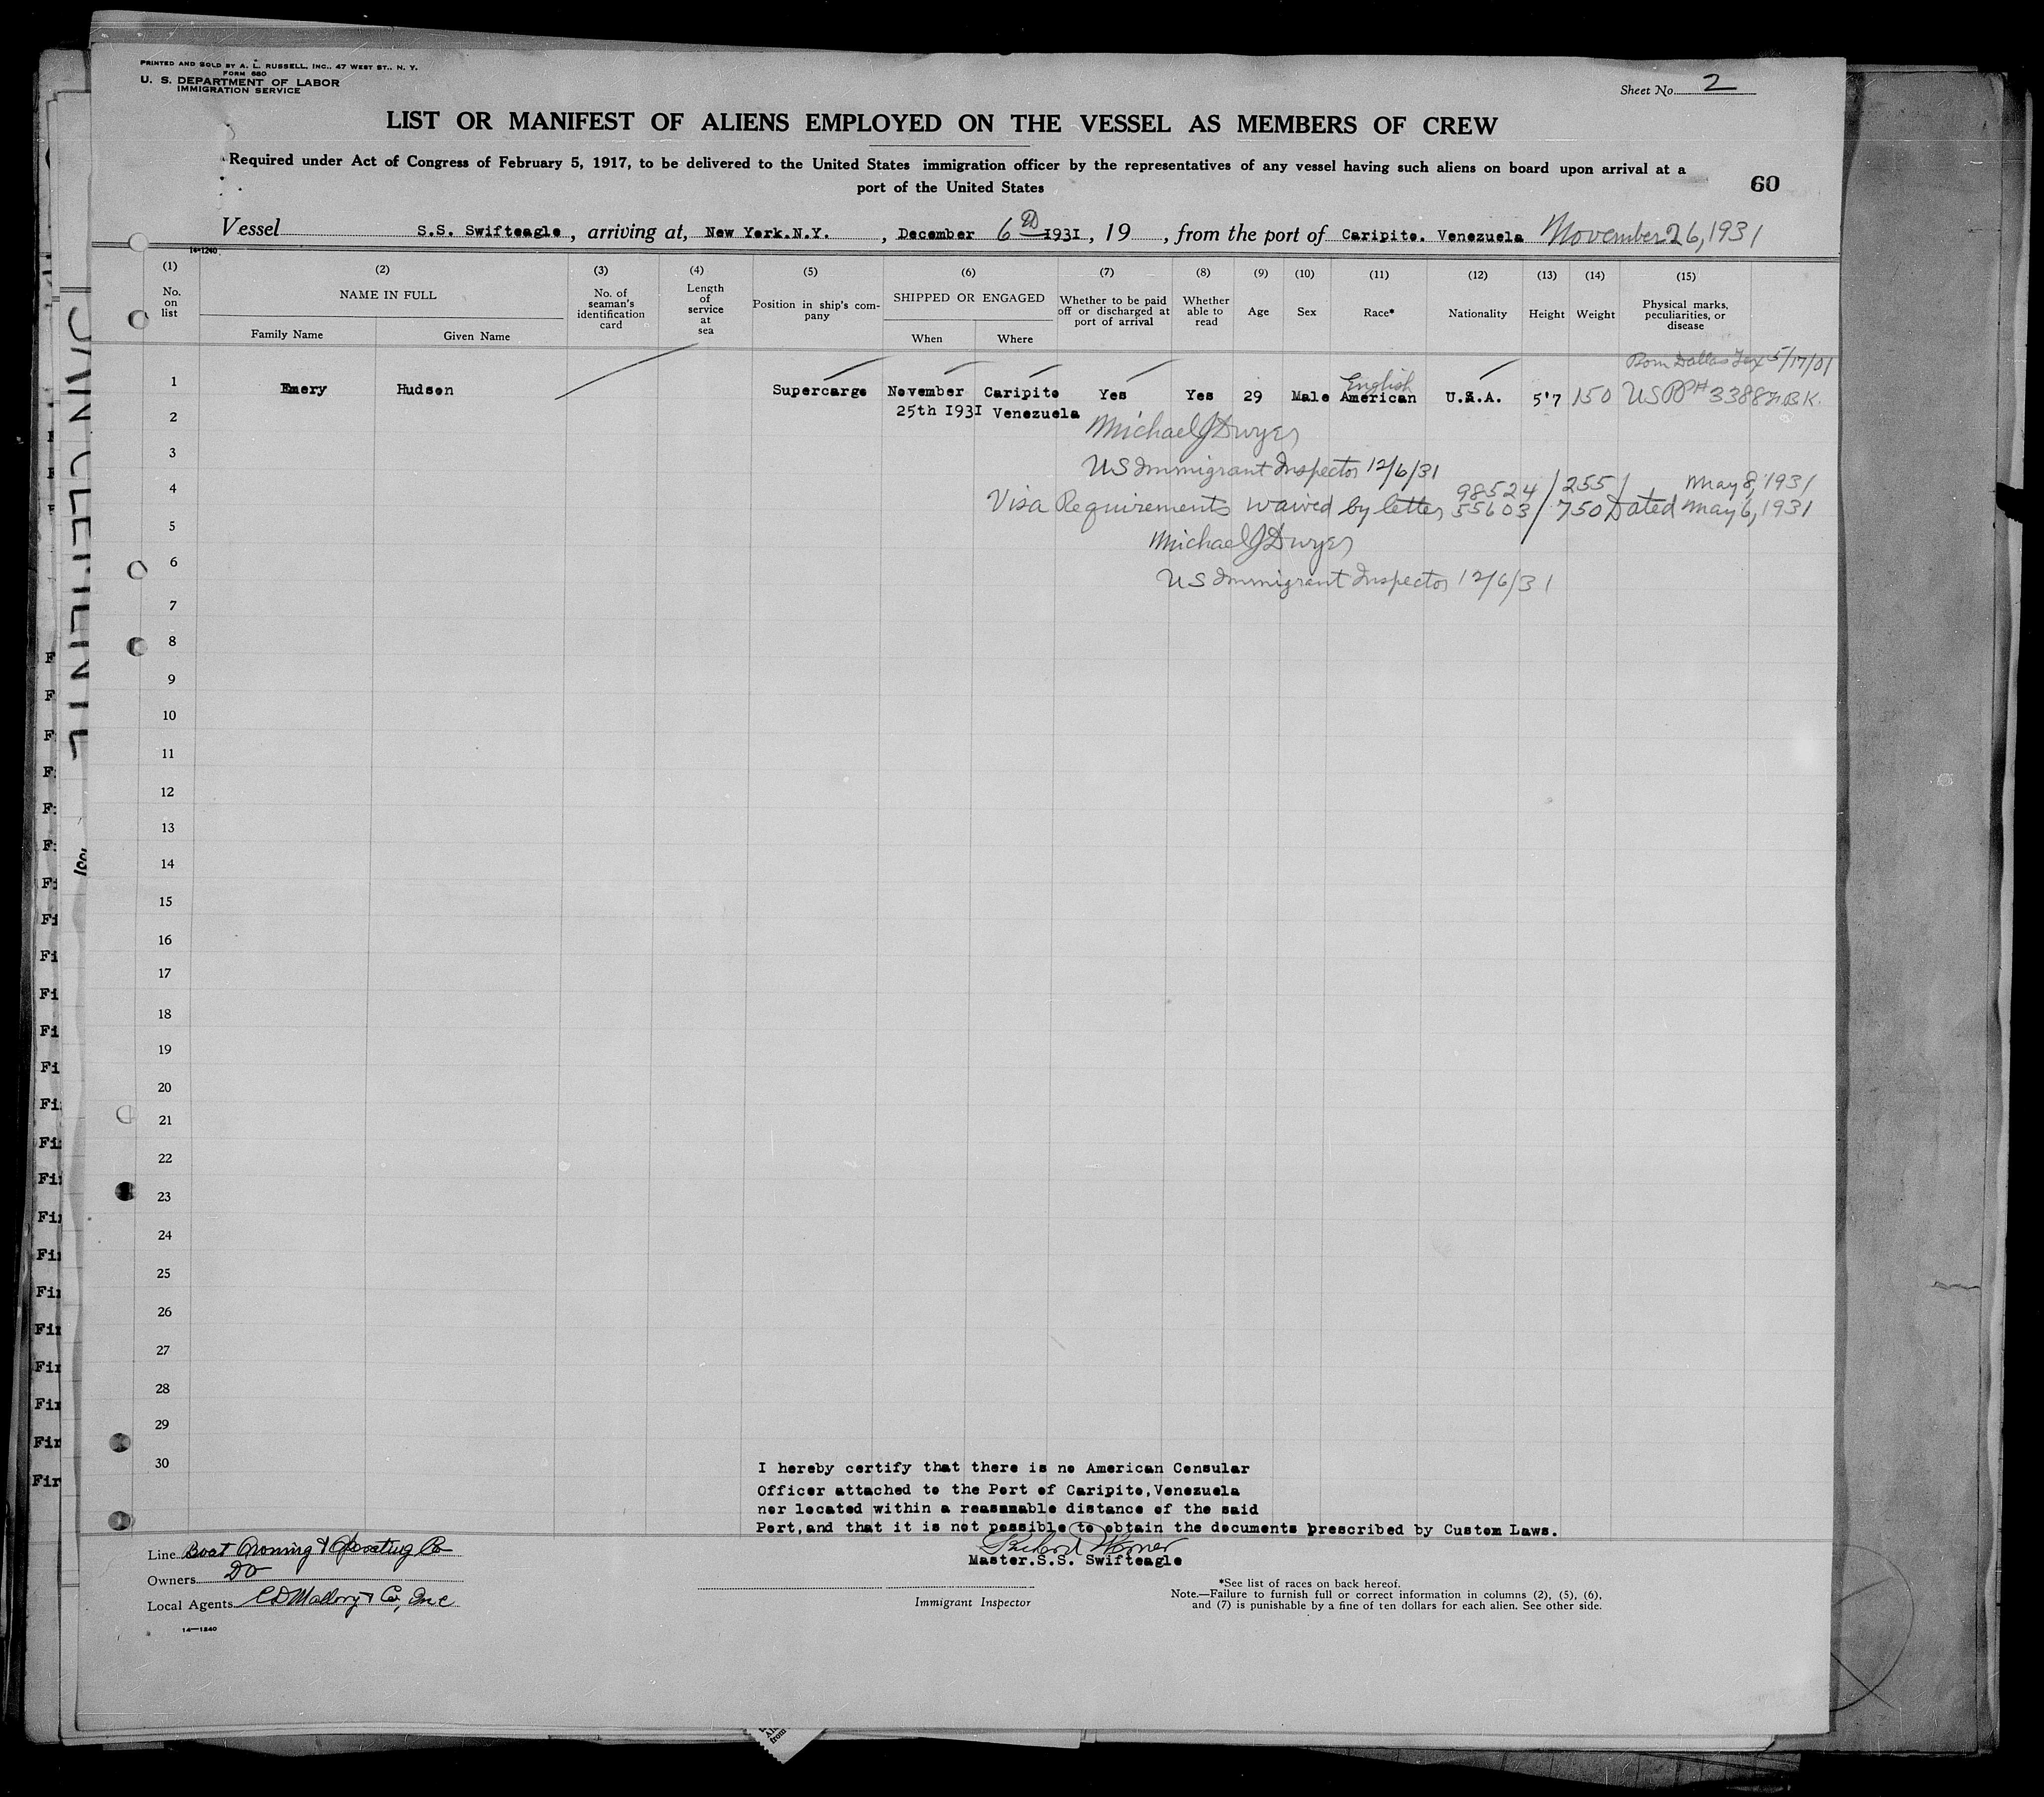 PRINTED AND SOLD BY A. L. RUSSELL, INC., 47 WEST ST., N. Y.
FORM 680
U. S. DEPARTMENT OF LABOR
IMMIGRATION SERVICE
Sheet No. 2
LIST OR MANIFEST OF ALIENS EMPLOYED ON THE VESSEL AS MEMBERS OF CREW
Required under Act of Congress of February 5, 1917, to be delivered to the United States immigration officer by the representatives of any vessel having such aliens on board upon arrival at a
port of the United States
60
Vessel S.S. Swifteagle, arriving at, New York.N.Y., December 6th 1931, 19, from the port of Caripito. Venezuela November 26, 1931
14-1240
(1) (2) (3) (4) (5) (6) (7) (8) (9) (10) (11) (12) (13) (14) (15)
No. on list
NAME IN FULL
Family Name
Given Name
No. of seaman's identification card
Length of service at sea
Position in ship's company
SHIPPED OR ENGAGED
When
Where
Whether to be paid off or discharged at port of arrival
Whether able to read
Age
Sex
Race*
Nationality
Height
Weight
Physical marks, peculiarities, or disease
Born Dallas Tex 5/17/01
English
1 Emery Hudson Supercargo November Caripito Yes Yes 29 Male American U.S.A. 5'7 150 USPP#
25th 1931 Venezuela
2
Michael J Dwyer
3
US Immigrant Inspector 12/6/31
4
98524/255 May 8, 1931
Visa Requirements waived by letter 55603/750 Dated May 6, 1931
5
Michael J Dwyer
6
US Immigrant Inspector 12/6/31
7
8
9
10
11
12
13
14
15
16
17
18
19
20
21
22
23
24
25
26
27
28
29
30
I hereby certify that there is no American Consular
Officer attached to the Port of Caripito,Venezuela
nor located within a reasonable distance of the said
Port,and that it is not possible to obtain the documents prescribed by Custom Laws.
Master.S.S. Swifteagle
Line Boat Owning & Operating Co
Owners Do
Local Agents C D Mallory & Co, Inc
Immigrant Inspector
*See list of races on back hereof.
Note.—Failure to furnish full or correct information in columns (2), (5), (6),
and (7) is punishable by a fine of ten dollars for each alien. See other side.
14—1240